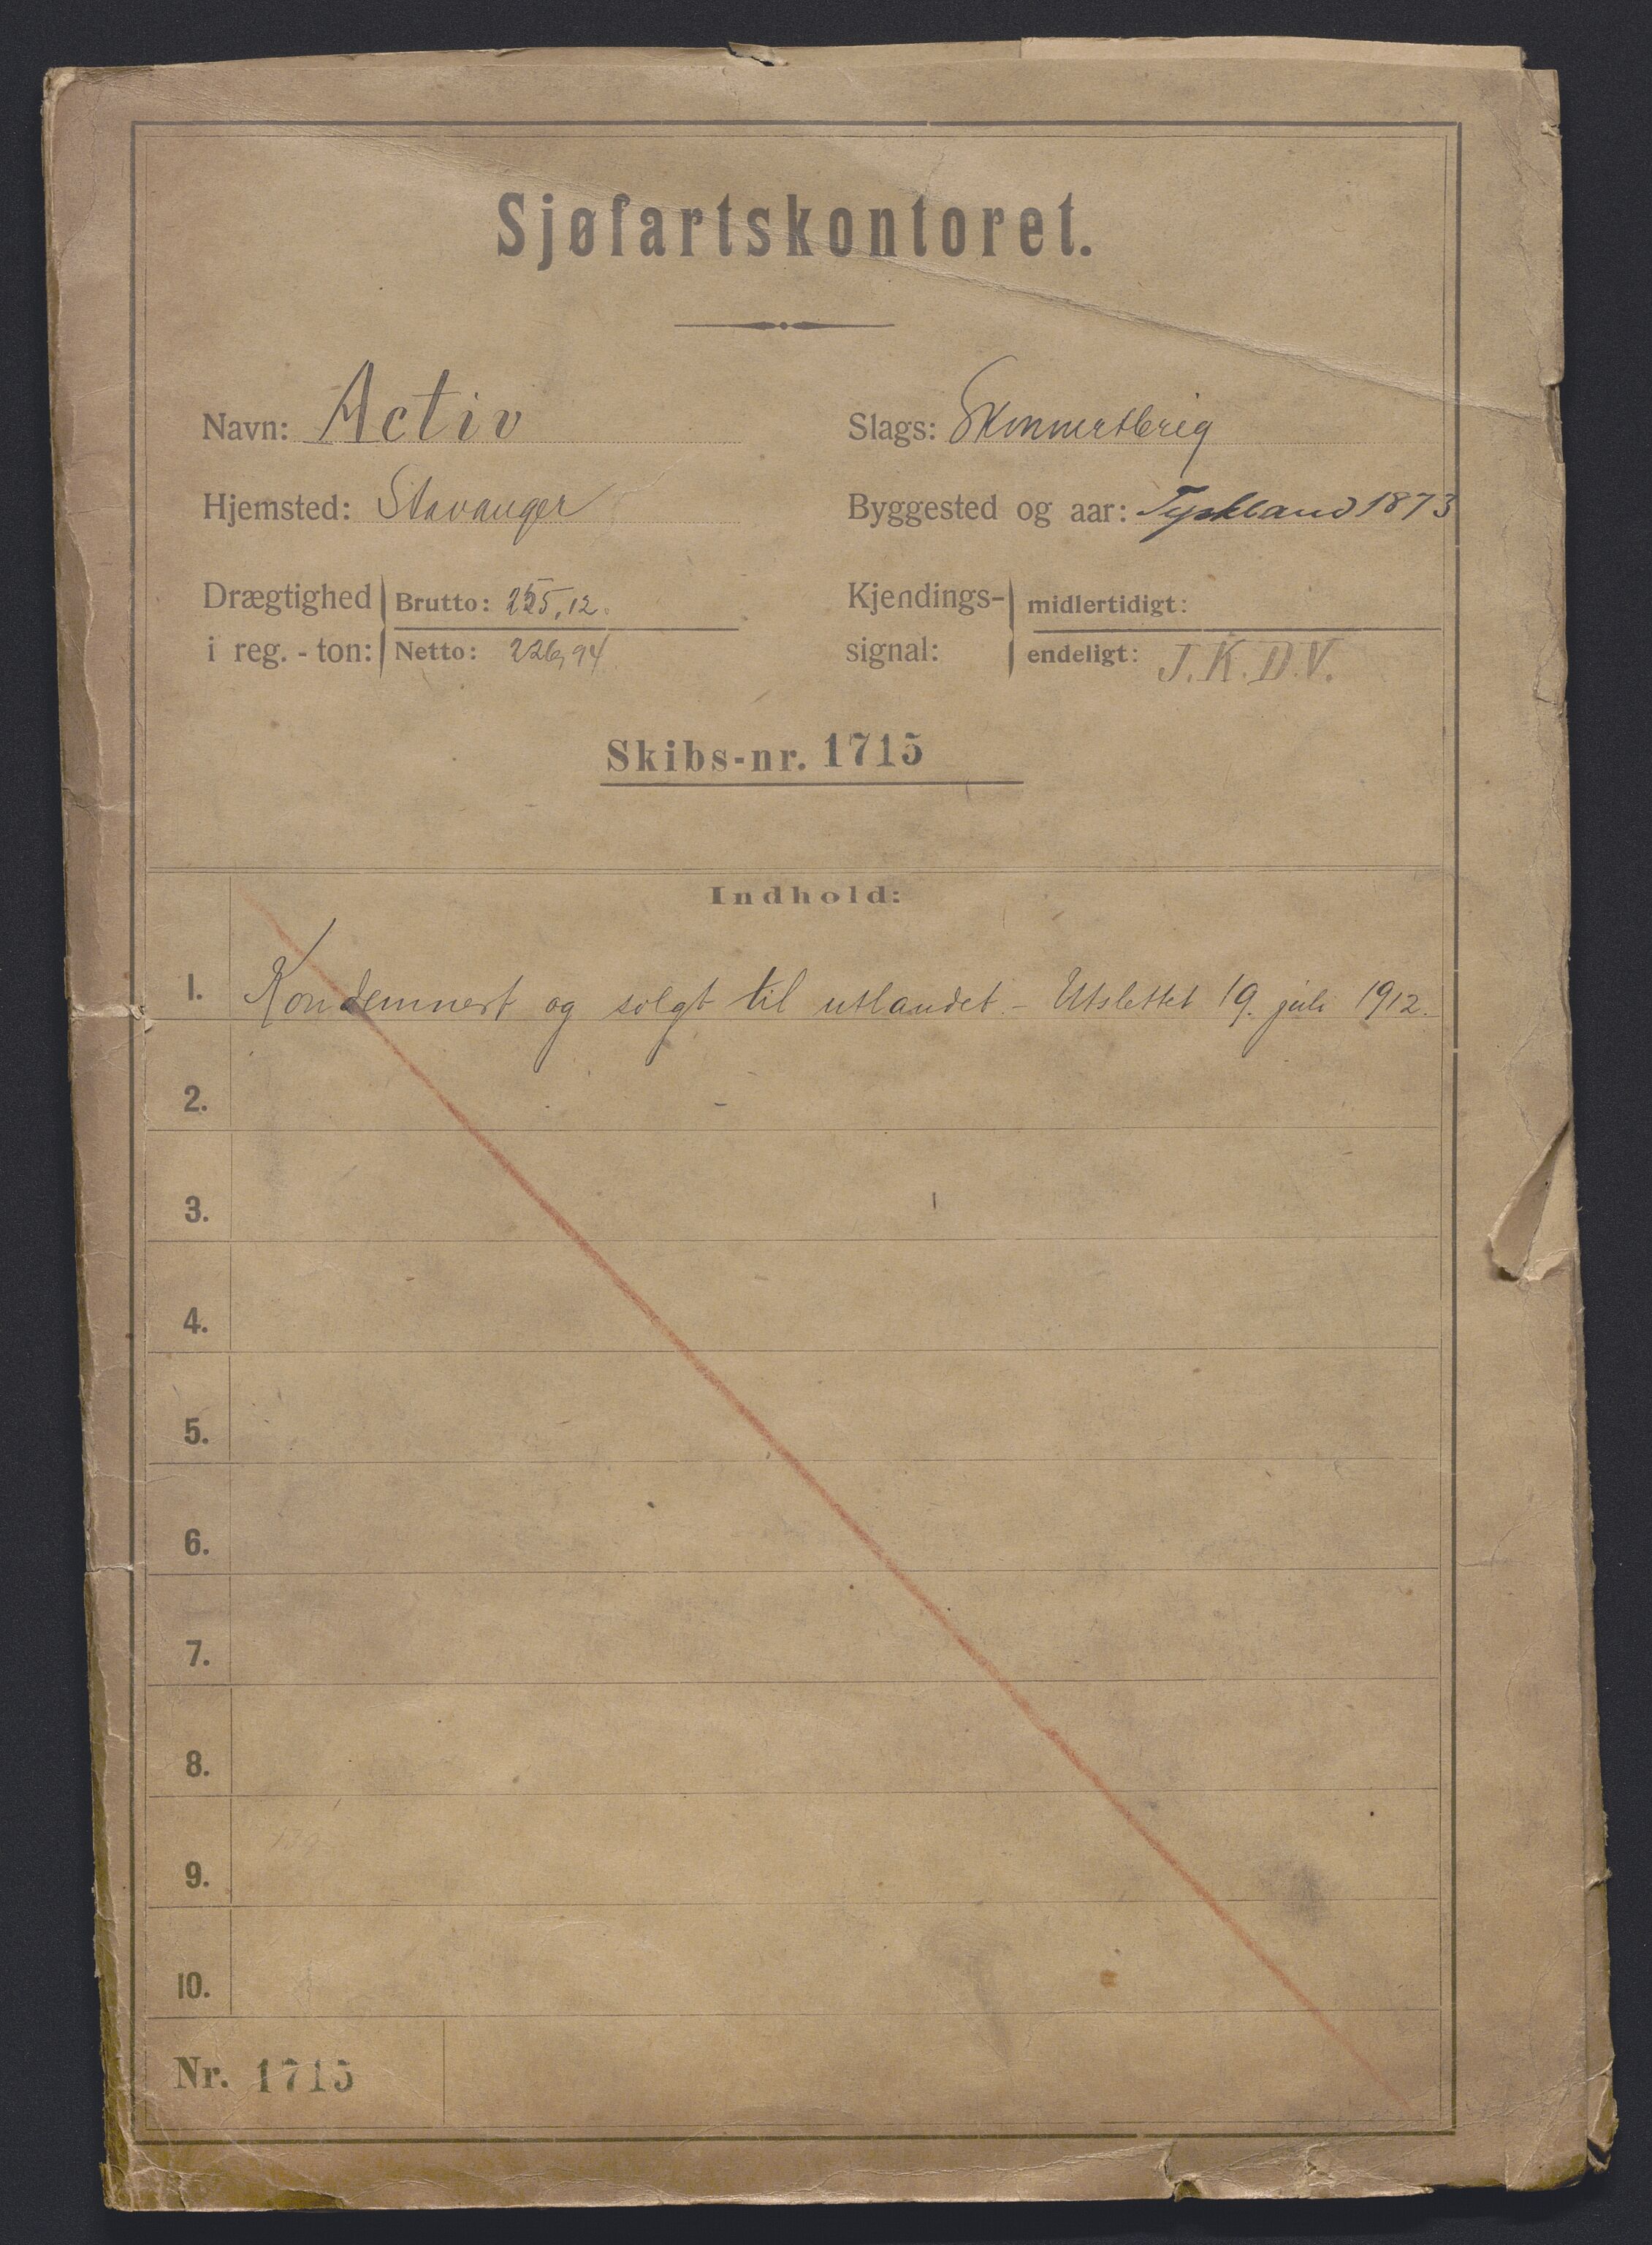 Sjøfartskontoret.
Navn: Activ
Slags: Skonnertbrig
Hjemsted: Stavanger
Byggested og aar: Tyskland 1873
Drægtighed i reg.-ton: Brutto: 255,12.
Netto: 226,94
Kjendings-signal: midlertidigt:
endeligt: J.K.D.V.
Skibs-nr. 1715
Indhold:
1. Kondemnert og solgt til utlandet. - Utslettet 19. juli 1912.
2.
3.
4.
5.
6.
7.
8.
9.
10.
Nr. 1715